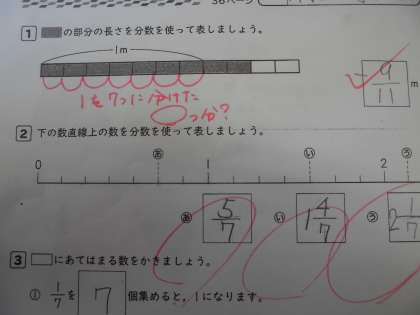 36ページ
1 の部分の長さを分数を使って表しましょう。
1m
9/11 m
1を7つに分けた
つ分?
2 下の数直線上の数を分数を使って表しましょう。
あ い う
0 1 2
あ 5/7 い 1 4/7 う 2 1/7
3 にあてはまる数をかきましょう。
① 1/7を 7 個集めると,1になります。